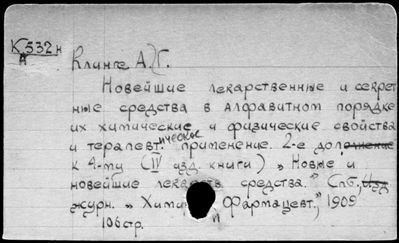 К 532 н
А
Клинге А. Г.
Новейшие лекарственные и секрет
ные средства в алфавитном порядке
их химические и физические свойства
и терапевтическое применение. 2-е дополнение
к 4-му (IV изд. книги) „Новые и
новейшие лекарств. средства." Спб., Изд.
журн. „Хими и Фармацевт.", 1909
106 стр.